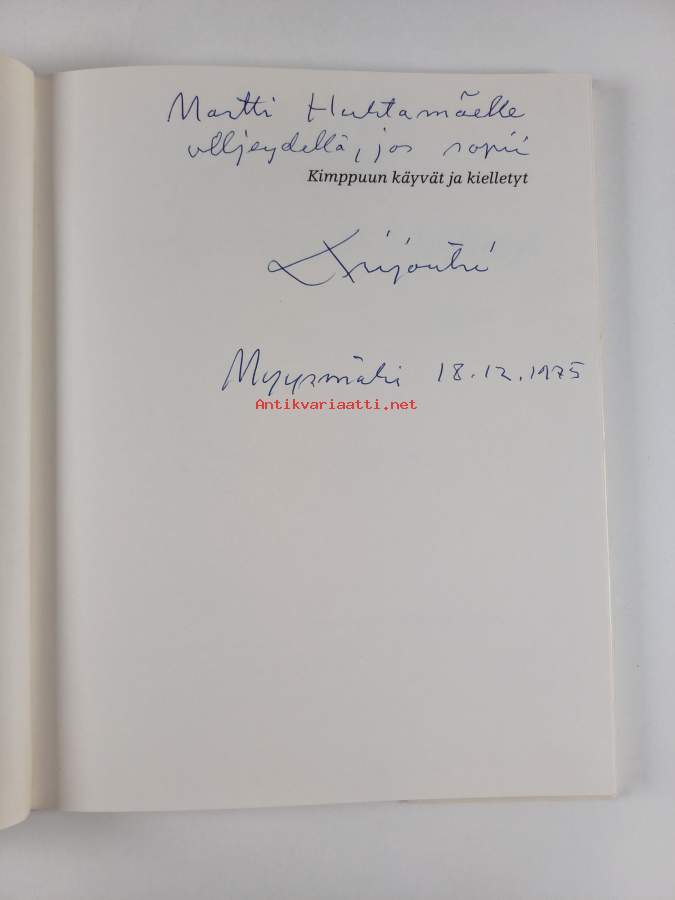 Martti Huhtamäelle
ulljeydellä, jos sopii
Kimppuun käyvät ja kielletyt
Myyrmäki 18.12.1975
Antikvariaatti.net